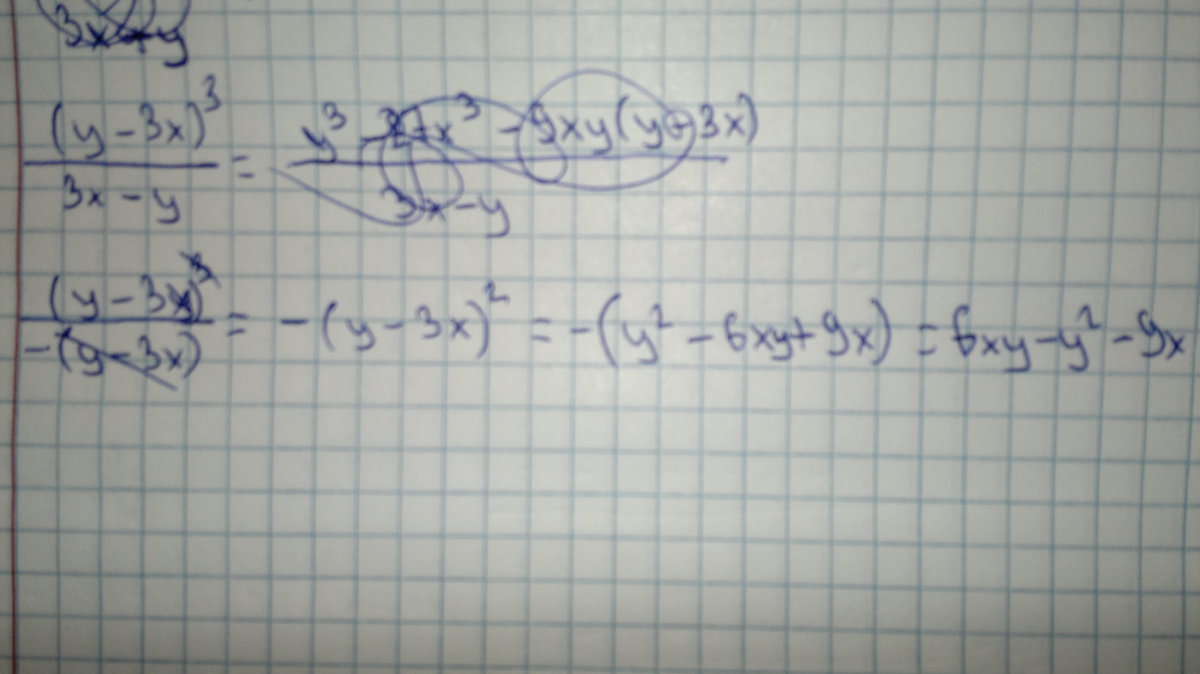 3x+y
(y-3x)³/(3x-y) = (y³-27x³-9xy(y+3x))/(3x-y)
(y-3x)³/(-(y-3x)) = -(y-3x)² = -(y²-6xy+9x) = 6xy-y²-9x